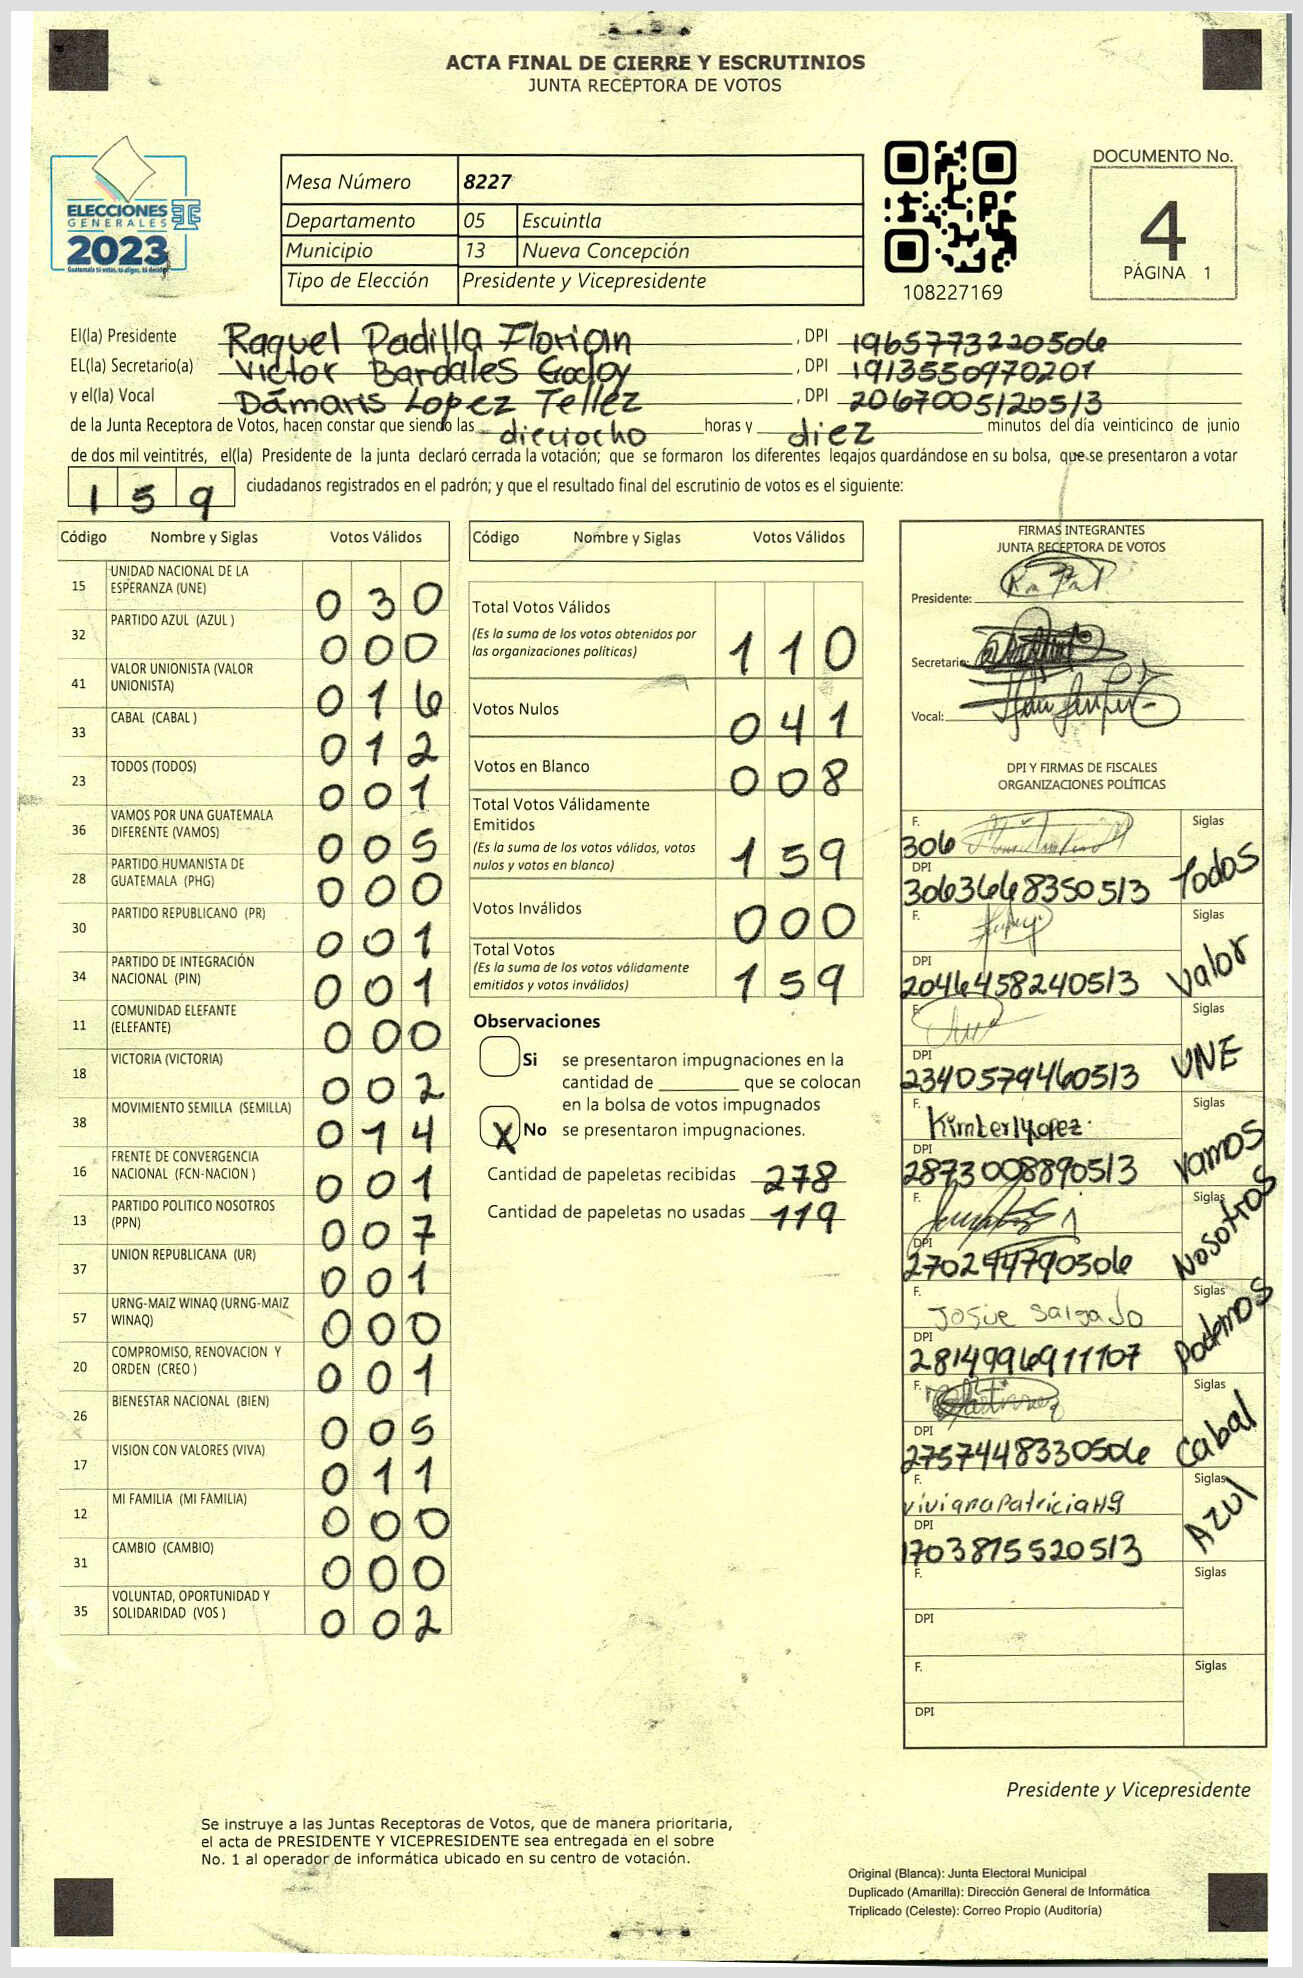 ACTA FINAL DE CIERRE Y ESCRUTINIOS
JUNTA RECEPTORA DE VOTOS
ELECCIONES
GENERALES
2023
Mesa Número 8227
Departamento 05 Escuintla
Municipio 13 Nueva Concepción
Tipo de Elección Presidente y Vicepresidente
108227169
DOCUMENTO No.
4
PÁGINA 1
El(la) Presidente Raquel Padilla Florian, DPI 1965773220506
EL(la) Secretario(a) Victor Bardales Godoy, DPI 1913550970201
y el(la) Vocal Dámaris Lopez Tellez, DPI 2067005120513
de la Junta Receptora de Votos, hacen constar que siendo las dieciocho horas y diez minutos del día veinticinco de junio
de dos mil veintitrés, el(la) Presidente de la junta declaró cerrada la votación; que se formaron los diferentes legajos guardándose en su bolsa, que se presentaron a votar
159 ciudadanos registrados en el padrón; y que el resultado final del escrutinio de votos es el siguiente:
Código Nombre y Siglas Votos Válidos
15 UNIDAD NACIONAL DE LA ESPERANZA (UNE) 030
32 PARTIDO AZUL (AZUL ) 000
41 VALOR UNIONISTA (VALOR UNIONISTA) 016
33 CABAL (CABAL ) 012
23 TODOS (TODOS) 001
36 VAMOS POR UNA GUATEMALA DIFERENTE (VAMOS) 005
28 PARTIDO HUMANISTA DE GUATEMALA (PHG) 000
30 PARTIDO REPUBLICANO (PR) 001
34 PARTIDO DE INTEGRACIÓN NACIONAL (PIN) 001
11 COMUNIDAD ELEFANTE (ELEFANTE) 000
18 VICTORIA (VICTORIA) 002
38 MOVIMIENTO SEMILLA (SEMILLA) 014
16 FRENTE DE CONVERGENCIA NACIONAL (FCN-NACION ) 001
13 PARTIDO POLITICO NOSOTROS (PPN) 007
37 UNION REPUBLICANA (UR) 001
57 URNG-MAIZ WINAQ (URNG-MAIZ WINAQ) 000
20 COMPROMISO, RENOVACION Y ORDEN (CREO ) 001
26 BIENESTAR NACIONAL (BIEN) 005
17 VISION CON VALORES (VIVA) 011
12 MI FAMILIA (MI FAMILIA) 000
31 CAMBIO (CAMBIO) 000
35 VOLUNTAD, OPORTUNIDAD Y SOLIDARIDAD (VOS ) 002
Código Nombre y Siglas Votos Válidos
Total Votos Válidos 110
(Es la suma de los votos obtenidos por
las organizaciones políticas)
Votos Nulos 041
Votos en Blanco 008
Total Votos Válidamente
Emitidos 159
(Es la suma de los votos válidos, votos
nulos y votos en blanco)
Votos Inválidos 000
Total Votos 159
(Es la suma de los votos válidamente
emitidos y votos inválidos)
Observaciones
Si se presentaron impugnaciones en la
cantidad de ________ que se colocan
en la bolsa de votos impugnados
X No se presentaron impugnaciones.
Cantidad de papeletas recibidas 278
Cantidad de papeletas no usadas 119
FIRMAS INTEGRANTES
JUNTA RECEPTORA DE VOTOS
Presidente:
Secretario:
Vocal:
DPI Y FIRMAS DE FISCALES
ORGANIZACIONES POLÍTICAS
F. 306 Siglas
DPI 3063668350513 Todos
F. Siglas
DPI 2046458240513 Valor
F. Siglas
DPI 2340579460513 UNE
F. Kimberly Lopez Siglas
DPI 2873008890513 Vamos
F. Siglas
DPI 2702947790506 Nosotros
F. Josue Salgado Siglas
DPI 2814996911107 Podemos
F. Siglas
DPI 2757448330506 Cabal
F. Viviana Patricia HG Siglas
DPI 1703875520513 Azul
F. Siglas
DPI
F. Siglas
DPI
Presidente y Vicepresidente
Se instruye a las Juntas Receptoras de Votos, que de manera prioritaria,
el acta de PRESIDENTE Y VICEPRESIDENTE sea entregada en el sobre
No. 1 al operador de informática ubicado en su centro de votación.
Original (Blanca): Junta Electoral Municipal
Duplicado (Amarilla): Dirección General de Informática
Triplicado (Celeste): Correo Propio (Auditoría)